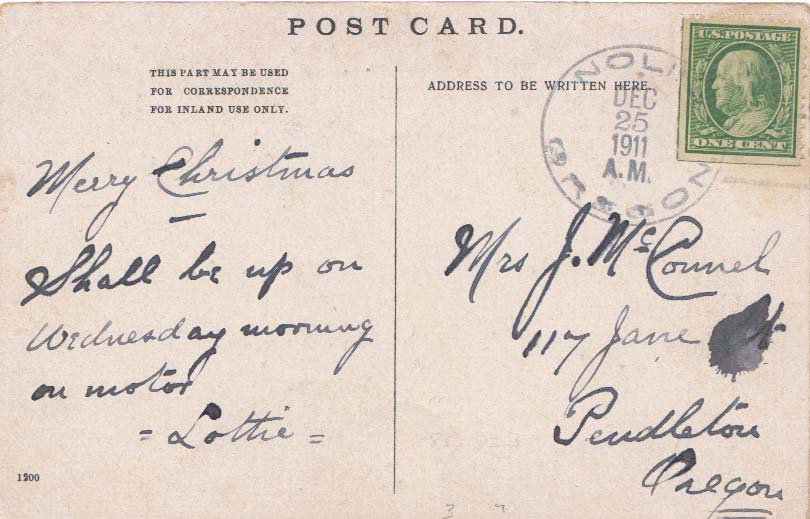 POST CARD.
THIS PART MAY BE USED
FOR CORRESPONDENCE
FOR INLAND USE ONLY.
Merry Christmas
Shall be up on
Wednesday morning
on motor
= Lottie =
1200
ADDRESS TO BE WRITTEN HERE.
DEC
25
1911
A.M.
OREGON
U.S. POSTAGE
ONE CENT
Mrs J. McConnel
117 Jane St
Pendleton
Oregon